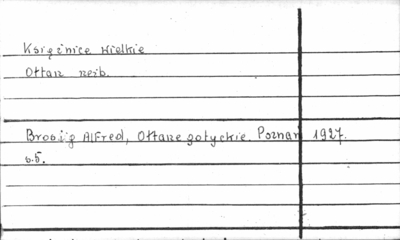 Książnice Wielkie
Ołtarz rzeźb.
Brosig Alfred, Ołtarze gotyckie. Poznań 1927.
s.5.